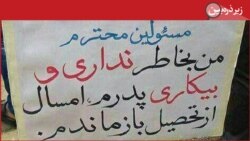 زیر ذره‌بین
مسئولین محترم
من بخاطر نداری و
بیکاری پدرم، امسال
از تحصیل بازماندم.